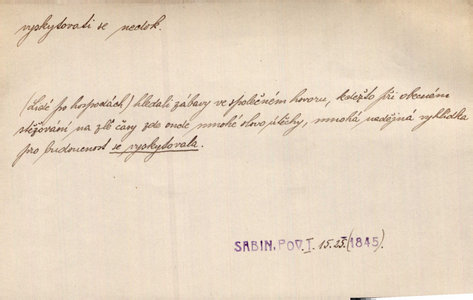 vyskytovati se nedok.
(Lidé po hospodách) hledali zábavy ve společném hovoru, kdežto při obecném
stěžování na zlé časy zde onde mnohé slovo útěchy, mnohá nadějná vyhlídka
pro budoucnost se vyskytovala.
SABIN. POV. I. 15. 25. (1845)